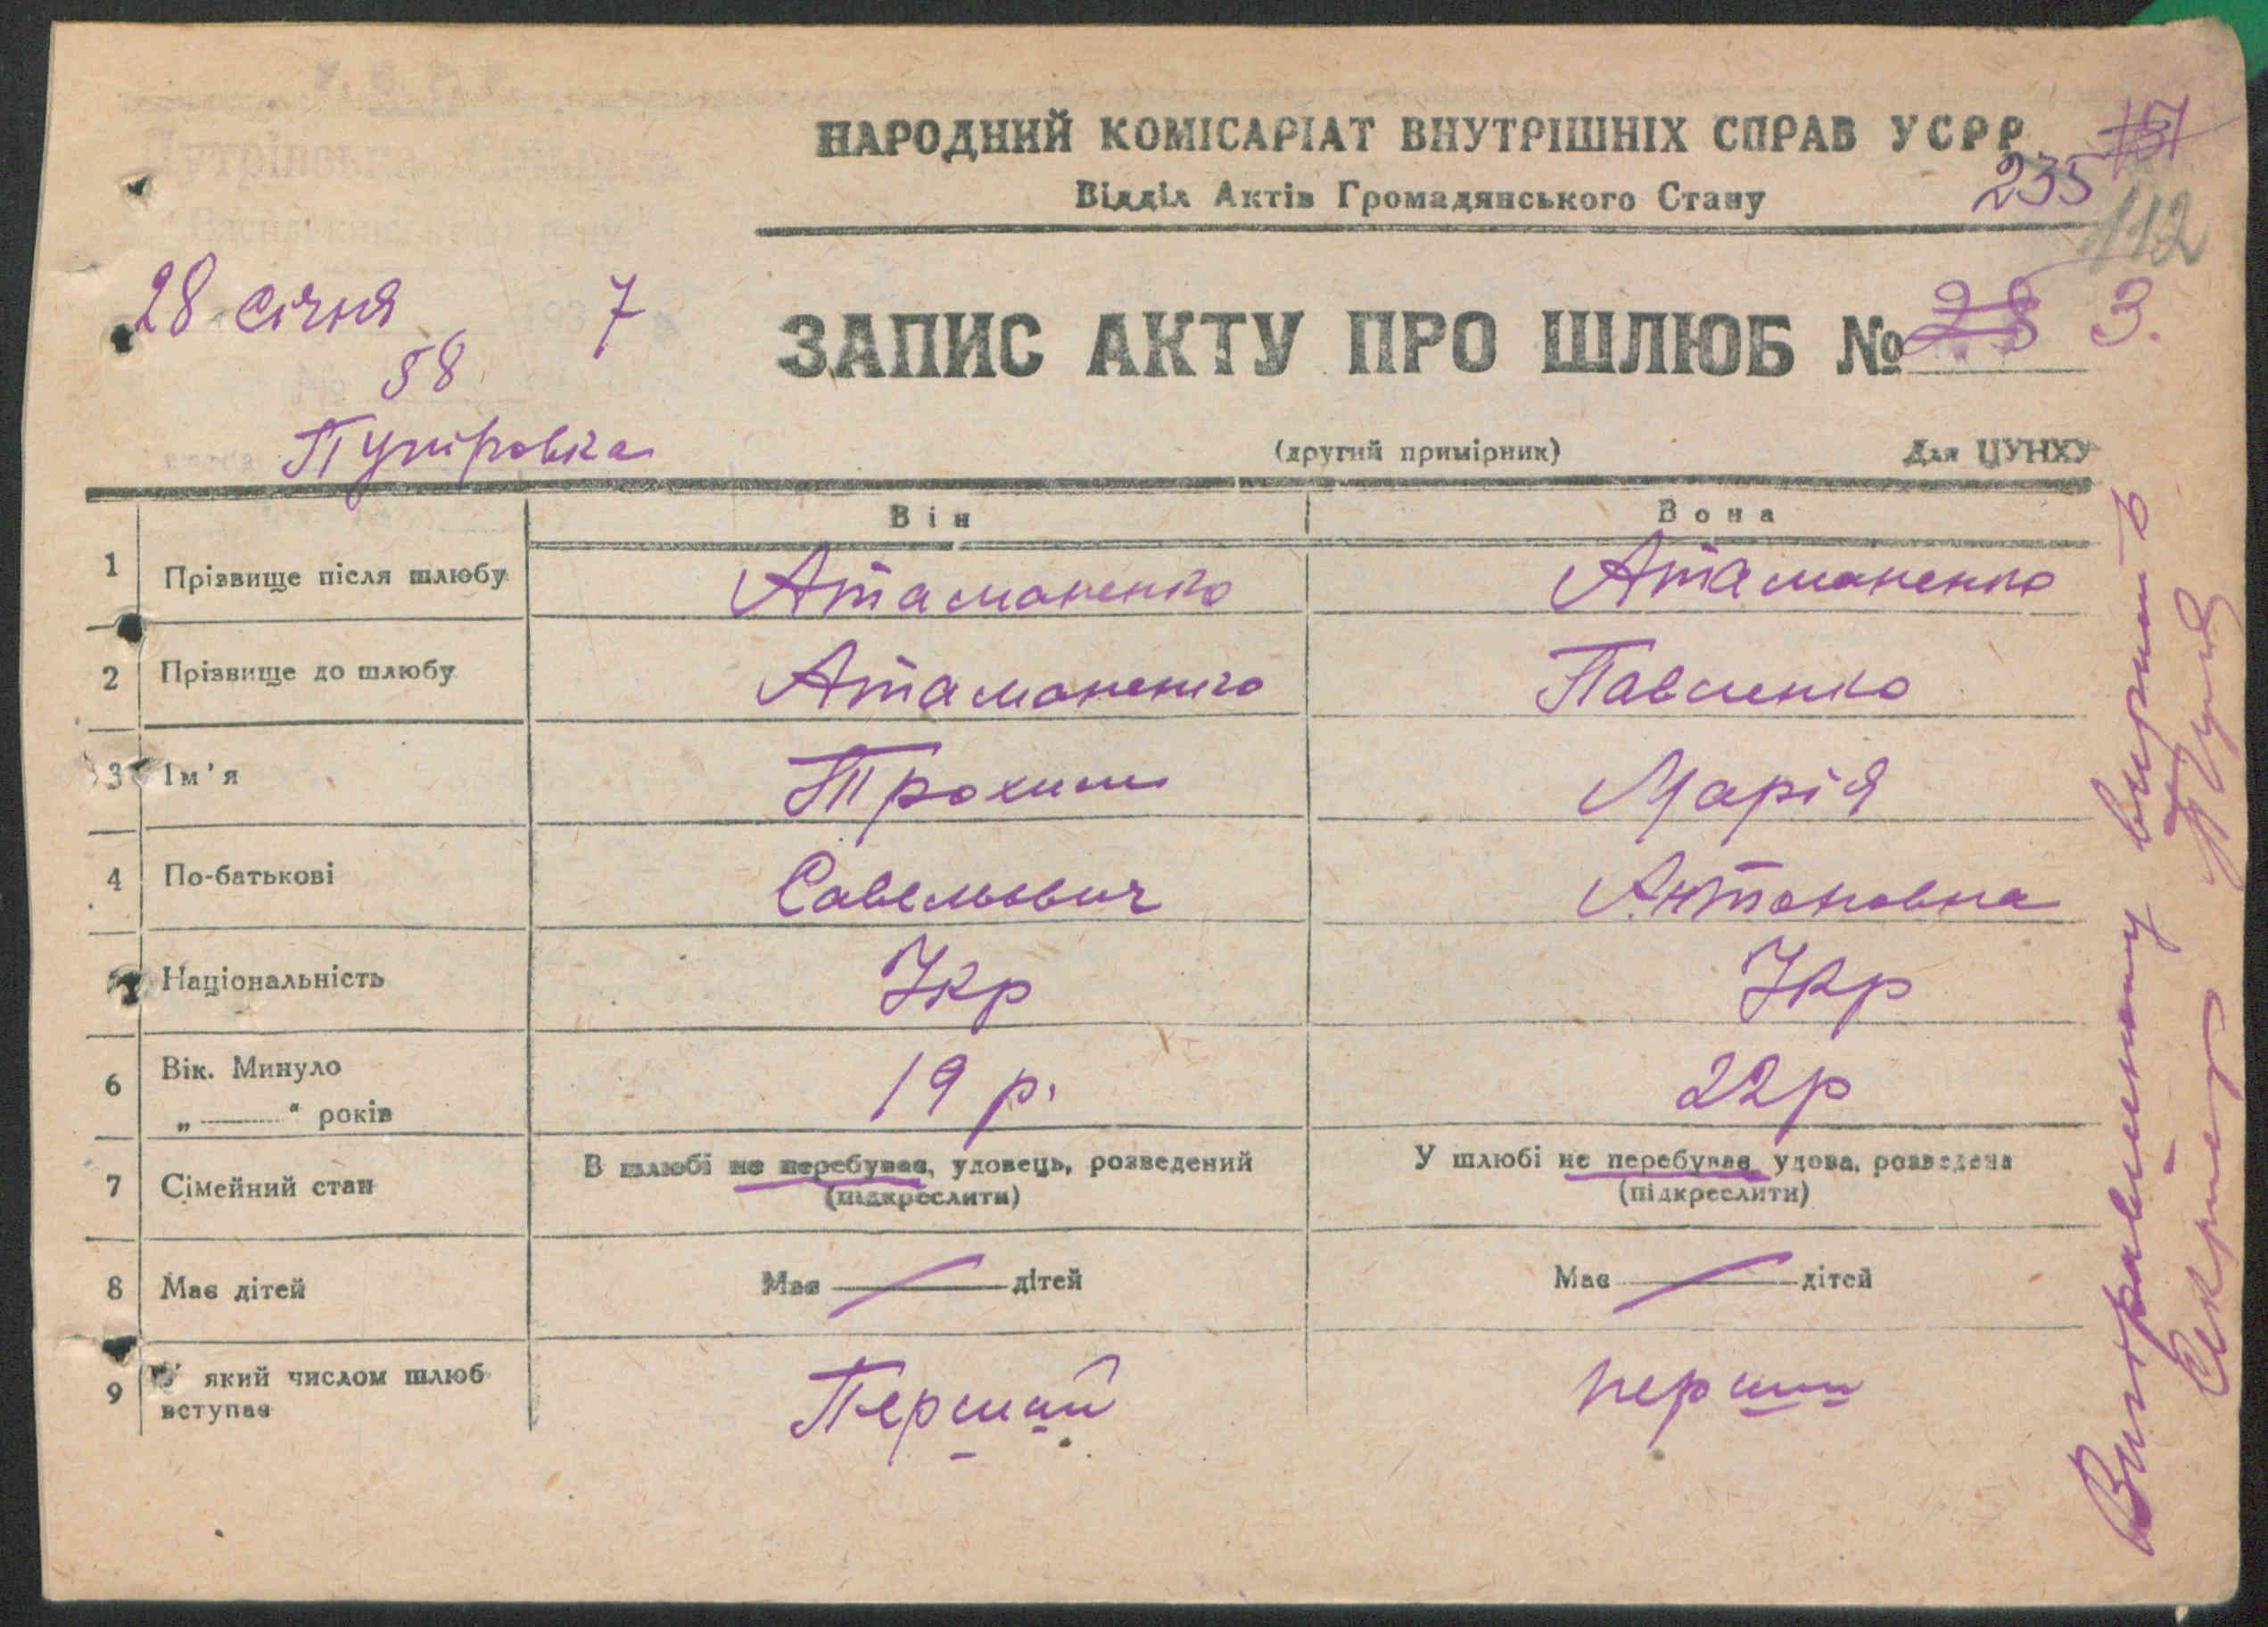 Путрівська Сільрада
Васильківського р-ну
28 січня 1937
№ 58
Путровка
НАРОДНИЙ КОМІСАРІАТ ВНУТРІШНІХ СПРАВ УСРР
Відділ Актів Громадянського Стану
235
112
ЗАПИС АКТУ ПРО ШЛЮБ № 28 3.
(другий примірник) Для ЦУНХУ
Він Вона
1 Прізвище після шлюбу Атаманенко Атаманенко
2 Прізвище до шлюбу Атаманенко Павленко
3 Ім'я Трохим Марія
4 По-батькові Савельович Антоновна
Національність Укр Укр
6 Вік. Минуло „ “ років 19 р. 22р
7 Сімейний стан В шлюбі не перебуває, удовець, розведений (підкреслити) У шлюбі не перебуває, удова, розведена (підкреслити)
8 Має дітей Має дітей Має дітей
9 У який числом шлюб вступає Перший перший
Виправленному вирить
Секретар